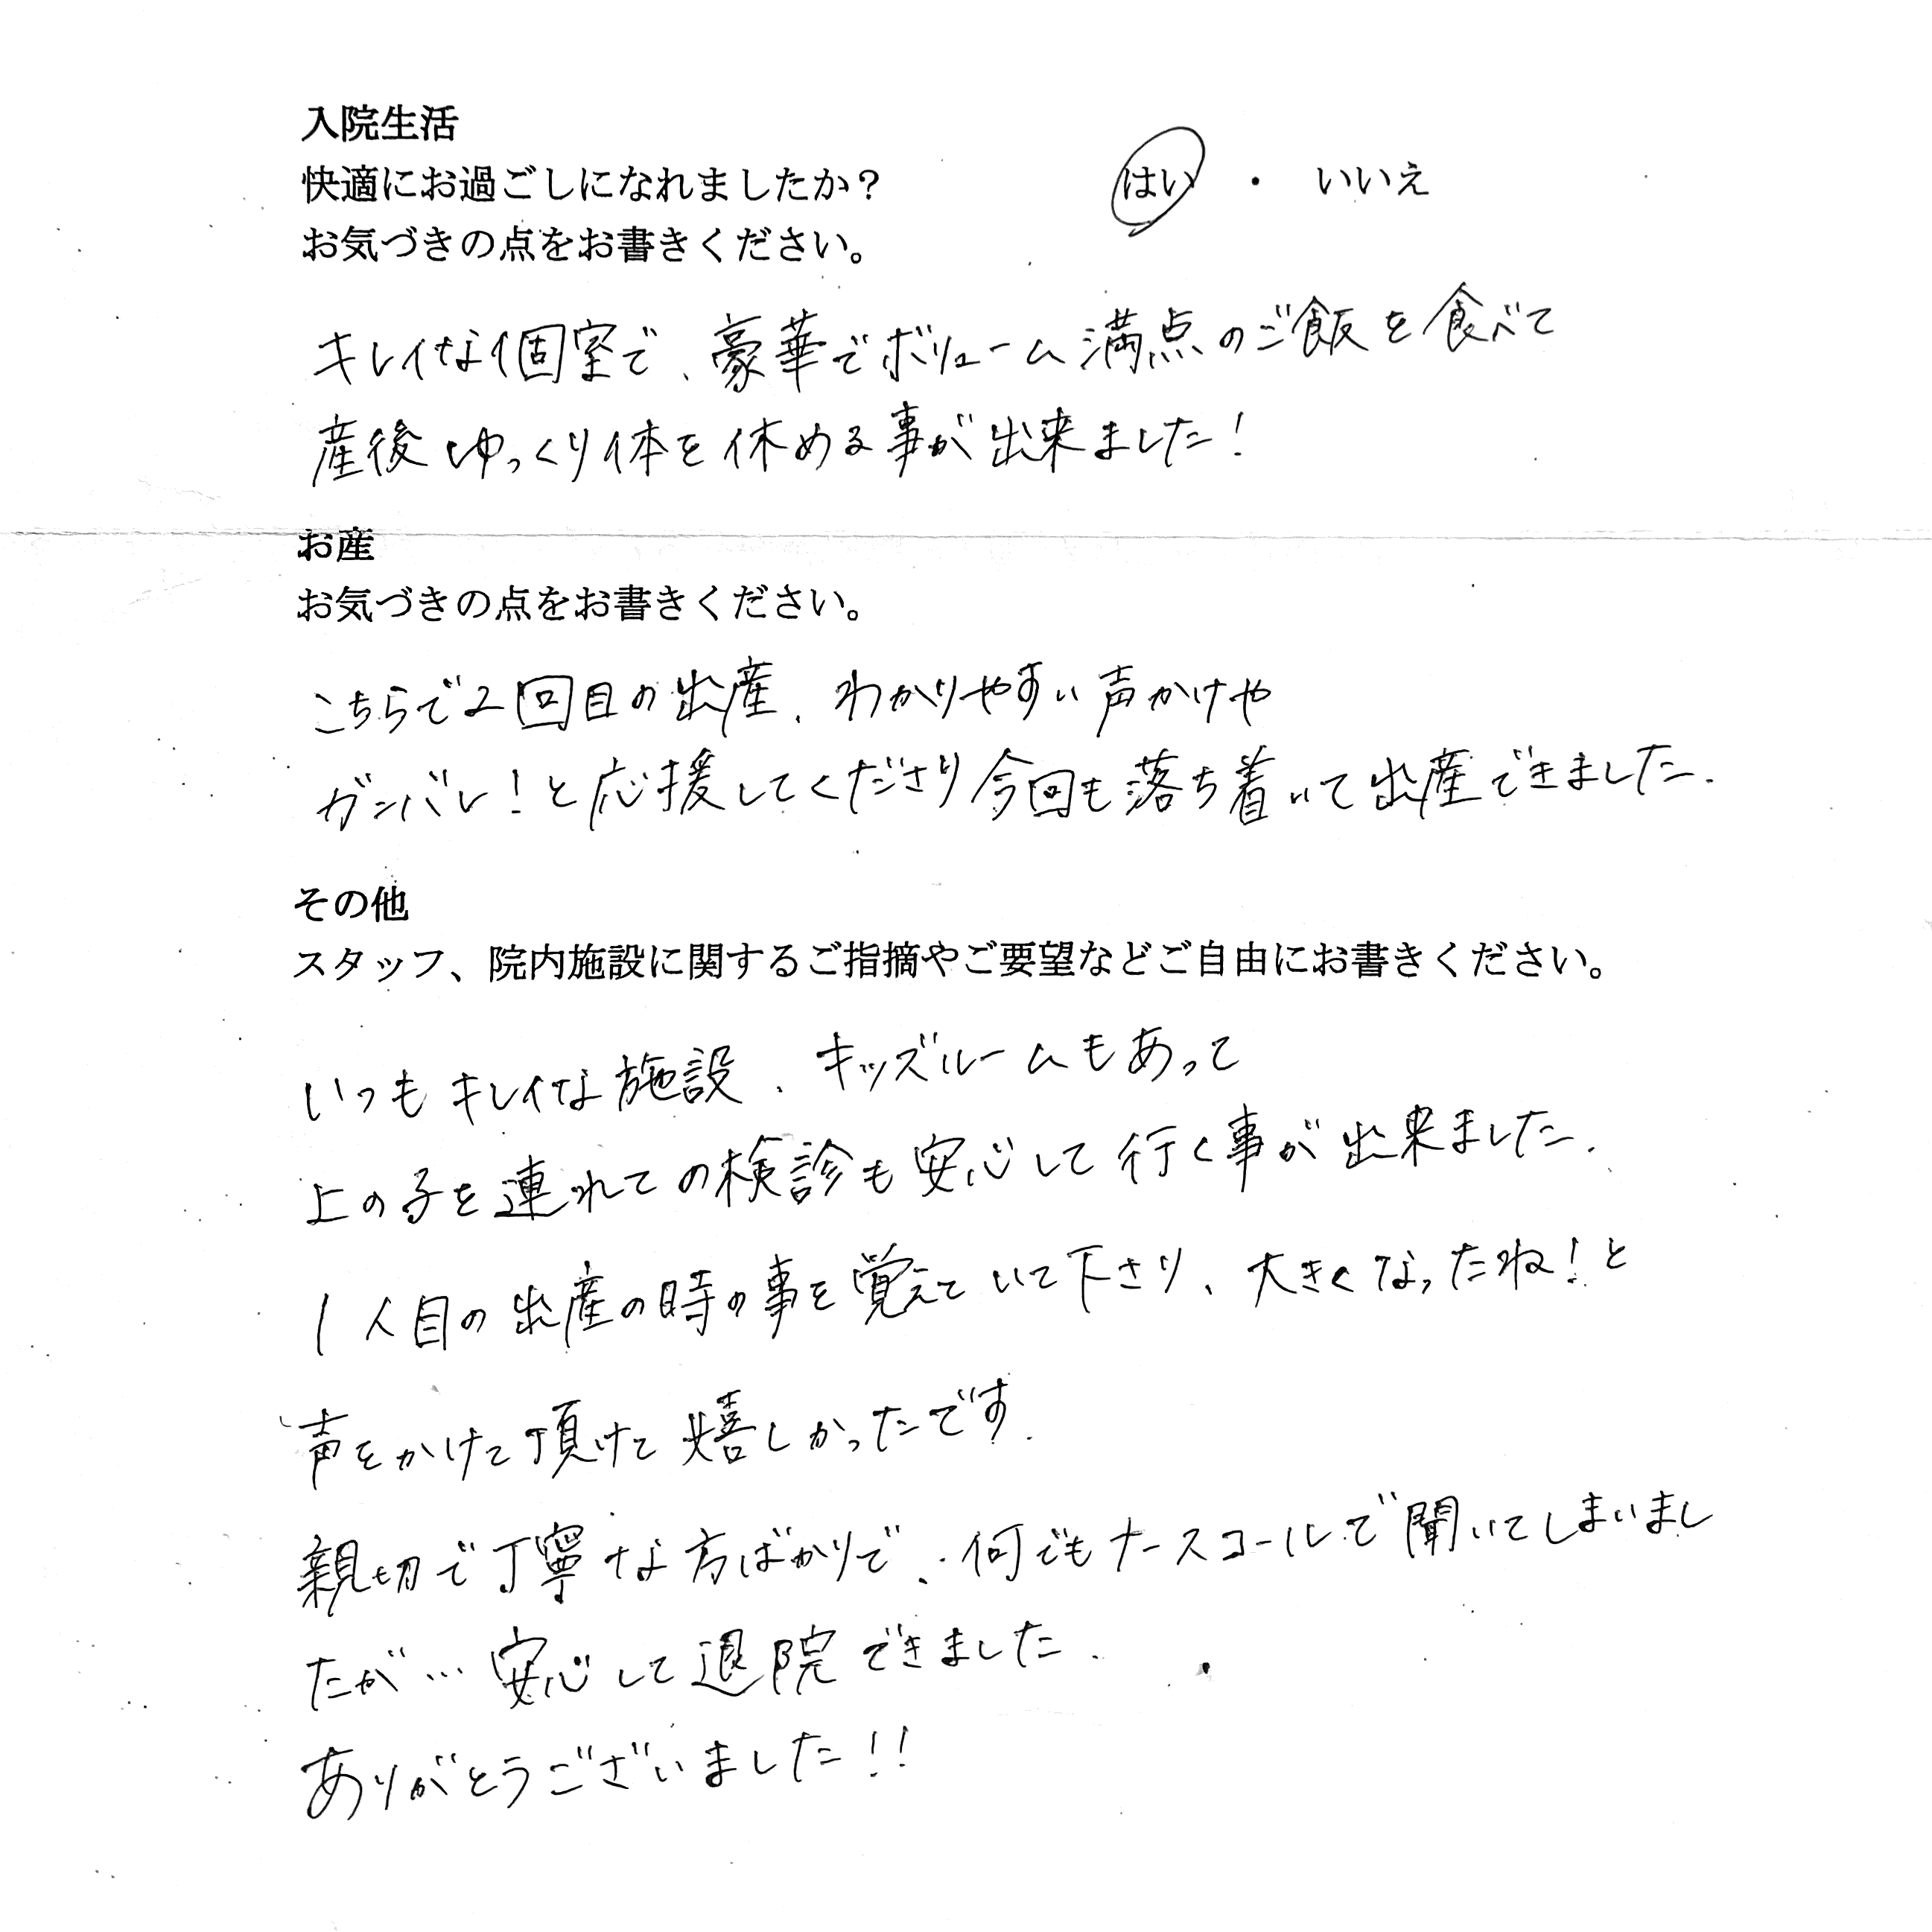 入院生活
快適にお過ごしになれましたか? はい ・ いいえ
お気づきの点をお書きください。
キレイな個室で、豪華でボリューム満点のご飯を食べて
産後ゆっくり体を休める事が出来ました!
お産
お気づきの点をお書きください。
こちらで2回目の出産、わかりやすい声かけや
ガンバレ!と応援してくださり今回も落ち着いて出産できました.
その他
スタッフ、院内施設に関するご指摘やご要望などご自由にお書きください。
いつもキレイな施設、キッズルームもあって
上の子を連れての検診も安心して行く事が出来ました.
1人目の出産の時の事を覚えていて下さり、大きくなったね!と
声をかけて頂けて嬉しかったです.
親切で丁寧な方ばかりで、何でもナースコールで聞いてしまいまし
たが…安心して退院できました.
ありがとうございました!!